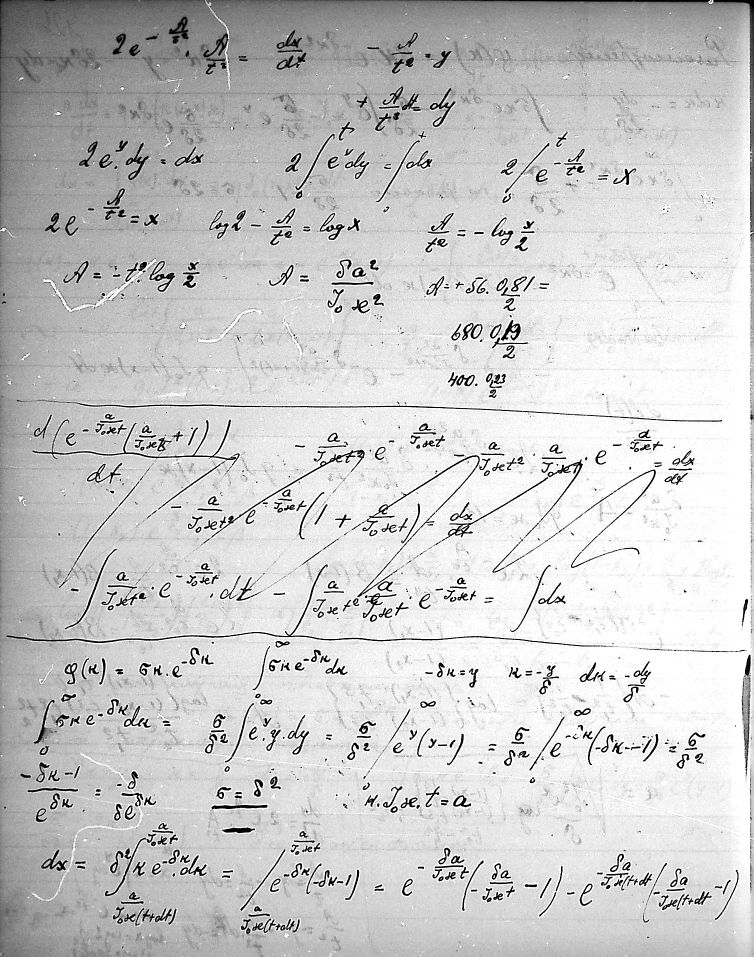 2e^{-A/t²} · A/t³ = dx/dt   - A/t² = y
+ A/t³ dt = dy
2e^y · dy = dx   2∫₀ᵗ e^y dy = ∫₀ᵗ dx   2 /₀ᵗ e^{-A/t²} = x
2e^{-A/t²} = x   log2 - A/t² = log x   A/t² = - log x/2
A = - t² · log x/2   A = δa²/(J₀ϰ²)   A = + 56 · 0,81/2 =
680 · 0,19/2
400 · 0,23/2
d(e^{-a/(J₀ϰt)}(a/(J₀ϰt) + 1))/dt   - a/(J₀ϰt²) · e^{-a/(J₀ϰt)} - a/(J₀ϰt²) · a/(J₀ϰt) · e^{-a/(J₀ϰt)} = dx/dt
- a/(J₀ϰt²) e^{-a/(J₀ϰt)} (1 + a/(J₀ϰt)) = dx/dt
- ∫ a/(J₀ϰt²) · e^{-a/(J₀ϰt)} · dt - ∫ a/(J₀ϰt²) · a/(J₀ϰt) e^{-a/(J₀ϰt)} = ∫ dx
φ(κ) = σκ · e^{-δκ}   ∫₀^∞ σκe^{-δκ}dκ   -δκ = y   κ = -y/δ   dκ = -dy/δ
∫₀^∞ σκe^{-δκ}dκ = σ/δ² ∫₀^∞ e^y · y · dy = σ/δ² /₀^∞ e^y(y-1) = σ/δ² /₀^∞ e^{-δκ}(-δκ-1) = σ/δ²
(-δκ-1)/e^{δκ} = -δ/(δe^{δκ})   σ = δ²   κ · J₀ϰ · t = a
dx = δ² ∫_{a/(J₀ϰ(t+dt))}^{a/(J₀ϰt)} κe^{-δκ} · dκ = /_{a/(J₀ϰ(t+dt))}^{a/(J₀ϰt)} e^{-δκ}(-δκ-1) = e^{-δa/(J₀ϰt)}(-δa/(J₀ϰt) - 1) - e^{-δa/(J₀ϰ(t+dt)}(-δa/(J₀ϰ(t+dt) - 1)